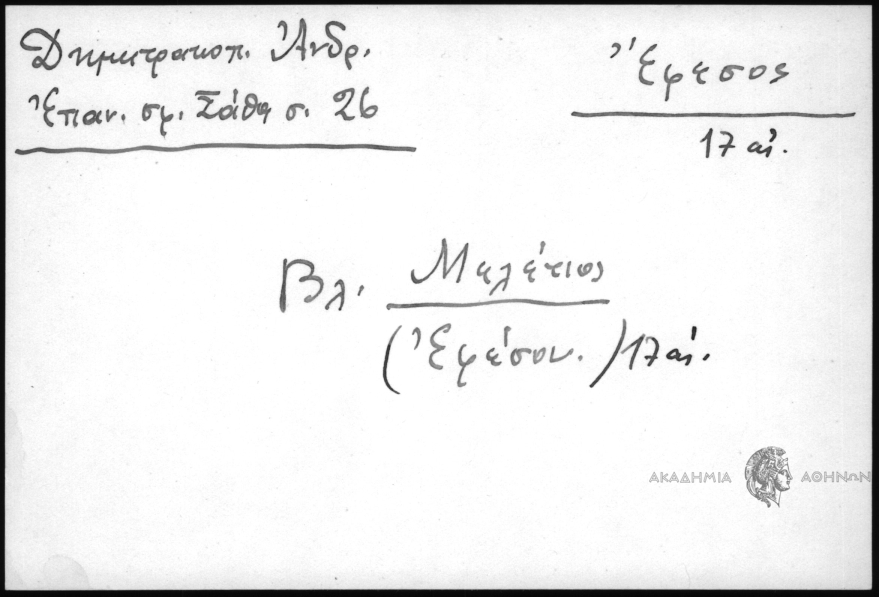 Δημητρακοπ. Ἀνδρ.
Ἐπαν. σφ. Σάθα σ. 26
Ἔφεσος
17 αἰ.
Βλ. Μελέτιος
(Ἐφέσου.) 17 αἰ.
ΑΚΑΔΗΜΙΑ ΑΘΗΝΩΝ